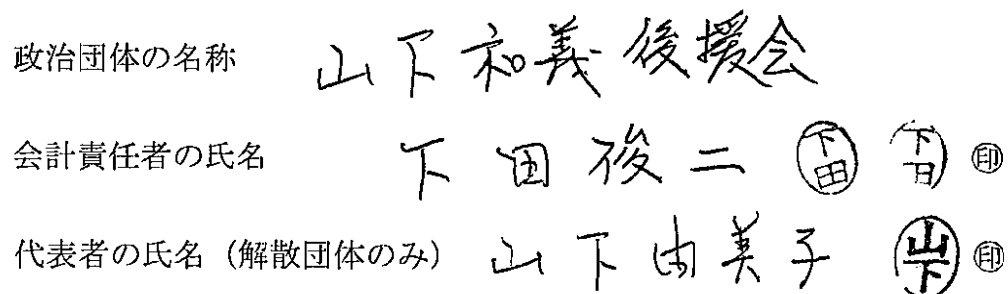 政治団体の名称 山下和義後援会
会計責任者の氏名 下田俊二 下田 下田 ㊞
代表者の氏名（解散団体のみ） 山下由美子 山下 ㊞